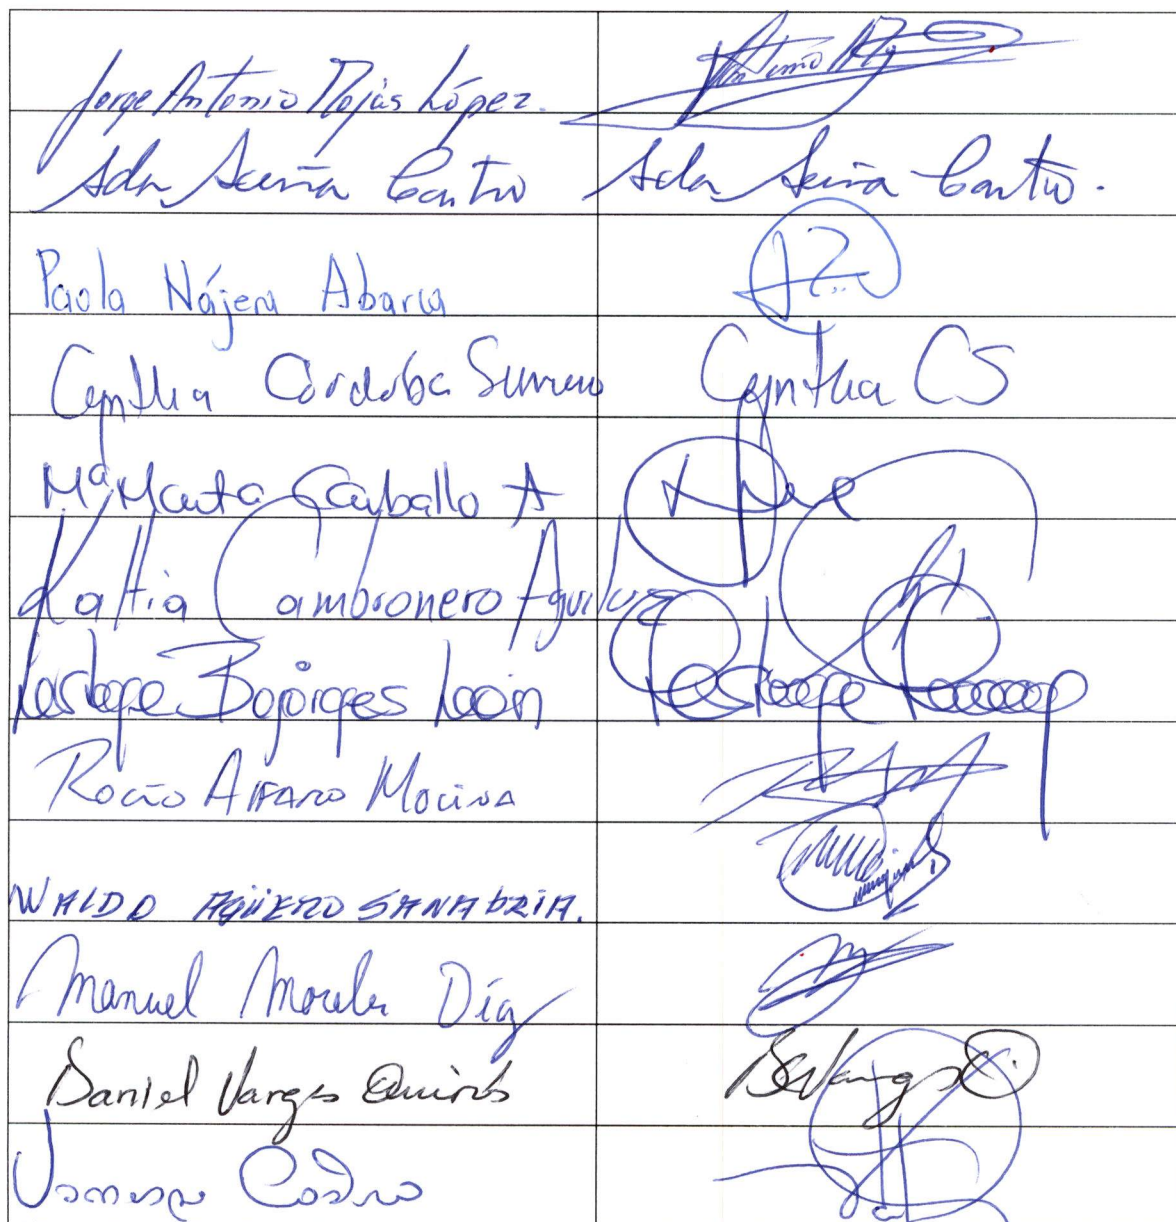 Jorge Antonio Rojas López.
Ada Acuña Castro Ada Acuña Castro.
Paola Nájera Abarca
Cynthia Córdoba Serrano Cynthia CS
Mª Marta Carballo A
Kattia Cambronero Aguiluz
Leslye Bojorges León Leslye
Rocío Alfaro Molina
WALDO AGÜERO SANABRIA.
Manuel Morales Díaz
Daniel Vargas Quirós DVargas Q.
Vanessa Castro